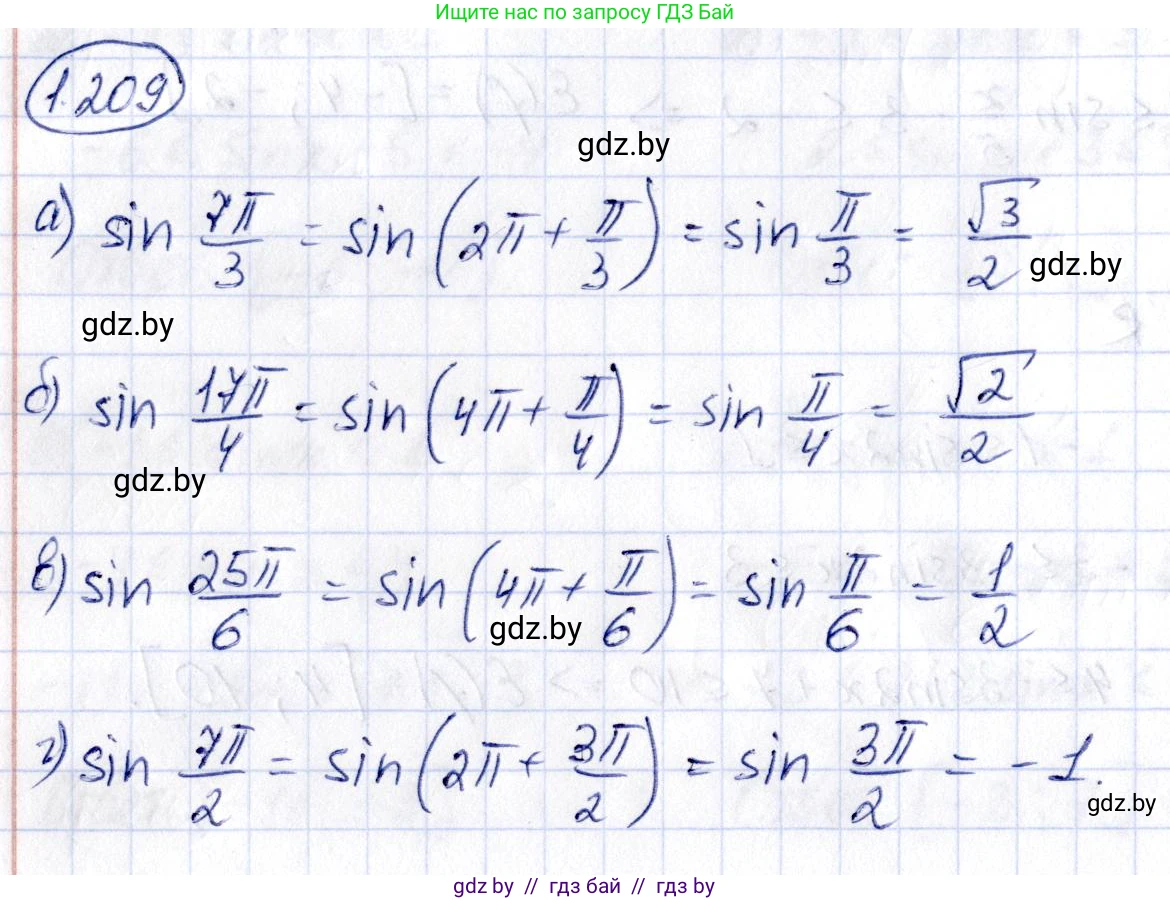 Ищите нас по запросу ГДЗ Бай
1.209
gdz.by
а) sin 7π/3 = sin (2π + π/3) = sin π/3 = √3/2
gdz.by
gdz.by
б) sin 17π/4 = sin (4π + π/4) = sin π/4 = √2/2
gdz.by
в) sin 25π/6 = sin (4π + π/6) = sin π/6 = 1/2
gdz.by
г) sin 7π/2 = sin (2π + 3π/2) = sin 3π/2 = -1.
gdz.by
gdz by // гдз бай // gdz by